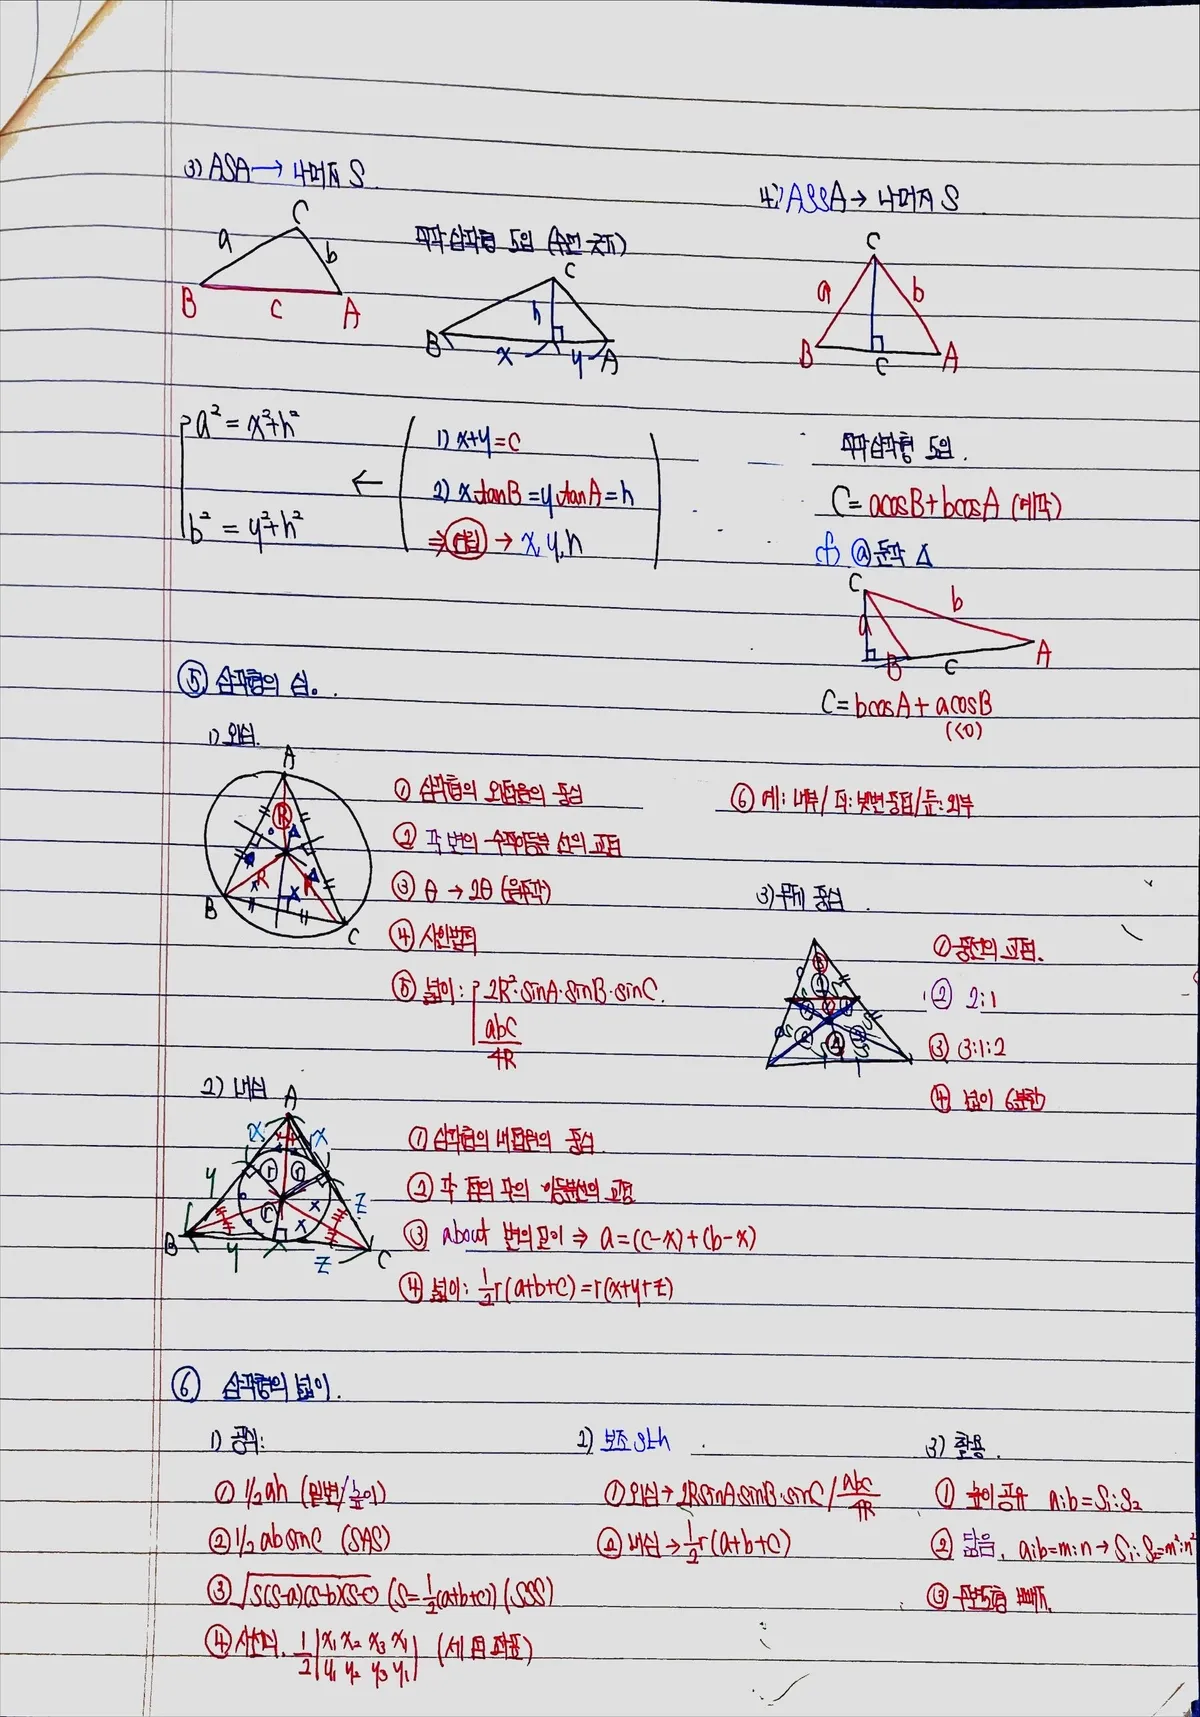 3) ASA → 나머지 S.
C
a
b
B
C
A
직각삼각형 도입 (수선 긋기)
C
h
B
x
y
A
a² = x²+h²
b² = y²+h²
←
1) x+y=C
2) x tanB = y tanA = h
⇒ 연립 → x, y, h
4) ASSA → 나머지 S
C
a
b
B
C
A
직각삼각형 도입.
C = acosB + bcosA (예각)
cf) ⓐ 둔각 Δ
C
b
a
B
C
A
C = bcosA + acosB
(<0)
⑤ 삼각형의 심.
1) 외심.
A
R
R
R
B
C
① 삼각형의 외접원의 중심
② 각 변의 수직이등분선의 교점
③ θ → 2θ (원주각)
④ 사인법칙
⑤ 넓이: 2R²·sinA·sinB·sinC.
abc
4R
⑥ 예: 내부 / 직: 빗변중점 / 둔: 외부
3) 무게 중심.
① 중선의 교점.
② 2:1
③ 3:1:2
④ 넓이 6분할
2) 내심
A
x
x
y
z
r
r
r
B
y
z
C
① 삼각형의 내접원의 중심
② 각 의 각의 이등분선의 교점
③ about 변의 길이 ⇒ a = (c-x) + (b-x)
④ 넓이: ½r(a+b+c) = r(x+y+z)
⑥ 삼각형의 넓이.
1) 공식:
① 1/2 ah (밑변/높이)
② 1/2 absinC (SAS)
③ √S(S-a)(S-b)(S-c) (S=½(a+b+c)) (SSS)
④ 사선식. ½ |x₁ x₂ x₃ x₁|
|y₁ y₂ y₃ y₁| (세 점 좌표)
2) 보조
① 외심 → 2RsinA·sinB·sinC / abc
4R
② 내심 → ½r(a+b+c)
3) 활용.
① 높이 공유 a:b = S₁:S₂
② 닮음. a:b=m:n → S₁:S₂=m²:n²